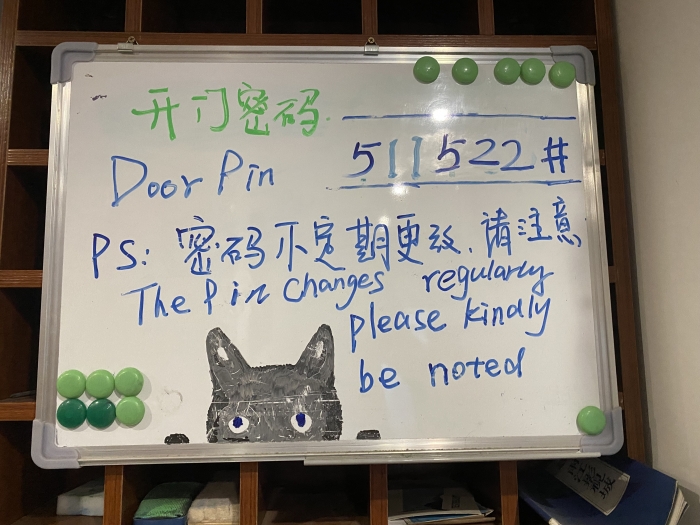 开门密码
Door Pin 511522#
PS: 密码不定期更改,请注意
The Pin Changes regularly
please kindly
be noted